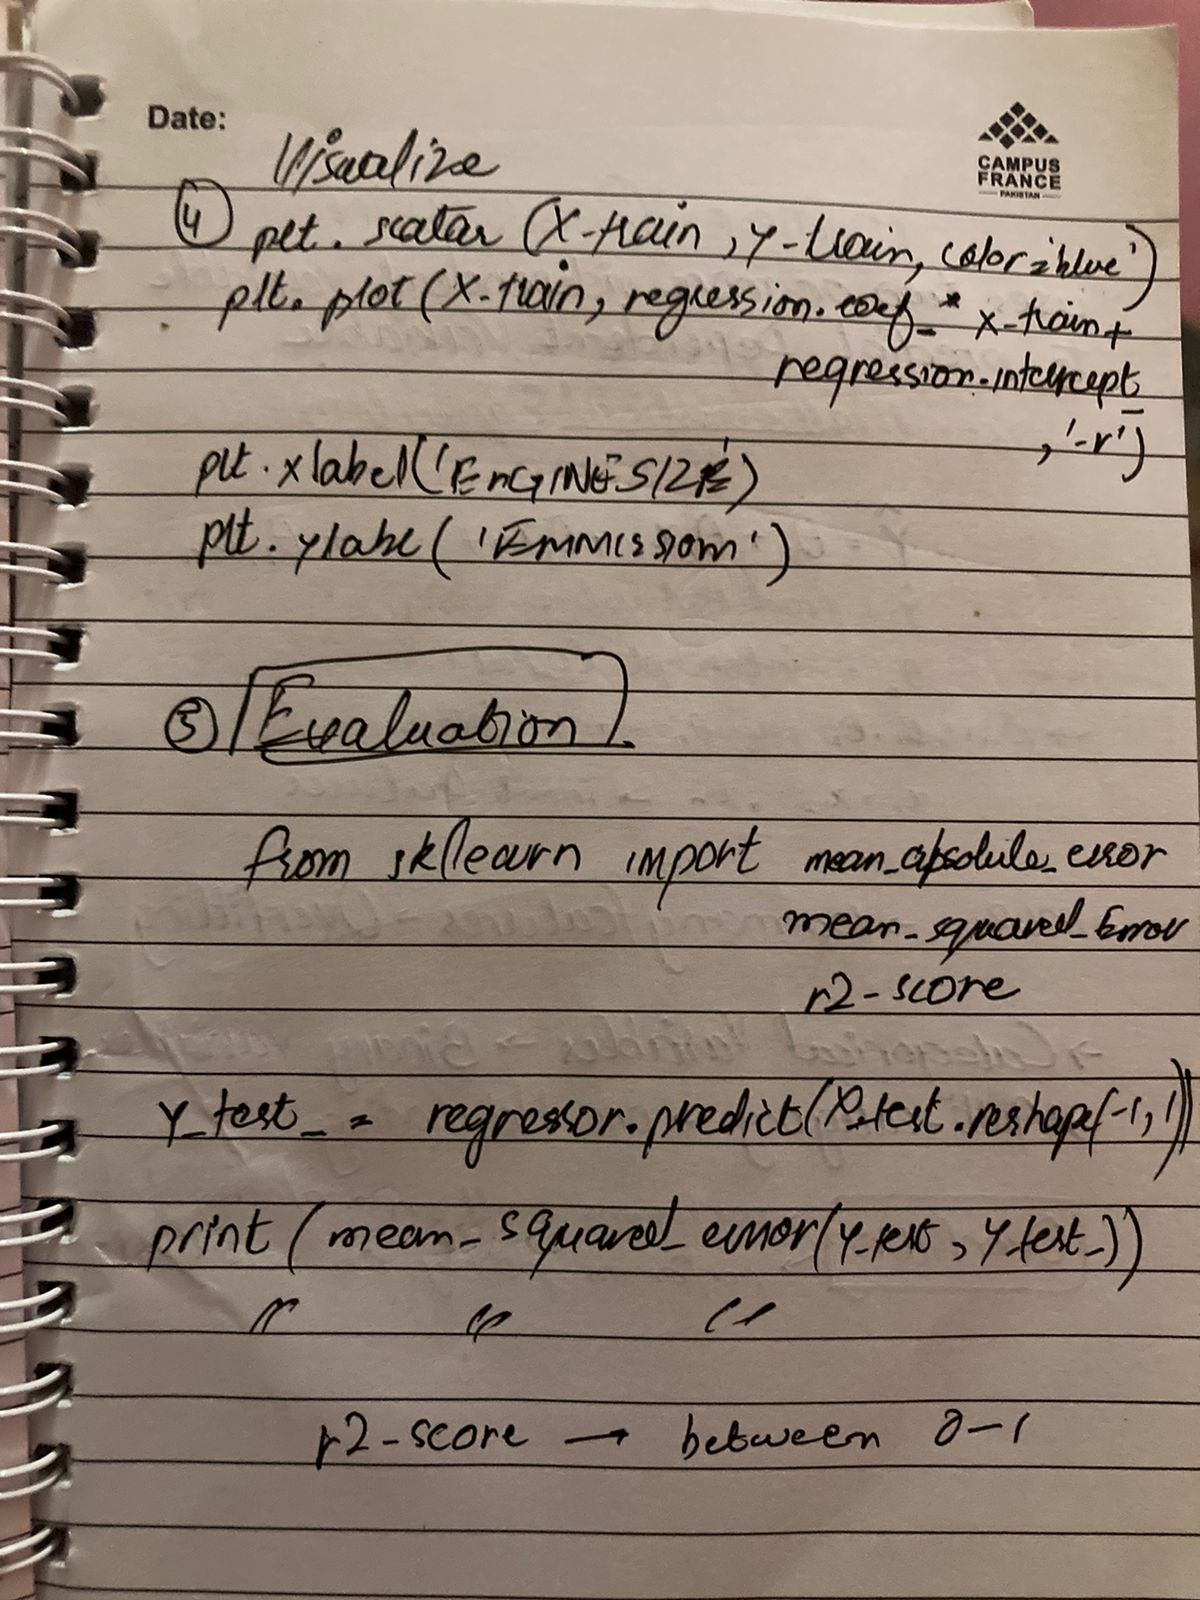 Date:
CAMPUS
FRANCE
PAKISTAN
Visualize
④ plt. scatar (X-train, y-train, color='blue')
plt. plot (X-train, regression.coef_* x-train+
regression.intercept_
, '-r')
plt. xlabel('ENGINESIZE')
plt. ylabe ('Emmission')
⑤ Evaluation
from sklearn import mean_absolute_error
mean_squared_Error
r2-score
Y_test_ = regressor.predict(X_test.reshape(-1,1))
print (mean_squared_error(Y_test, Y_test_))
" " "
r2-score → between 0-1